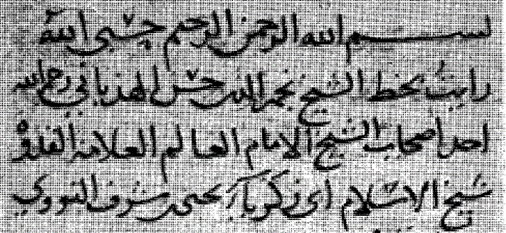 بسم الله الرحمن الرحيم حسبي الله
رايت بخط الشيخ نجم الدين حسن الهذباني رحمه الله
احد اصحاب الشيخ الامام العالم العلامة القدوة
شيخ الاسلام ابي زكريا يحيى بن شرف النووي